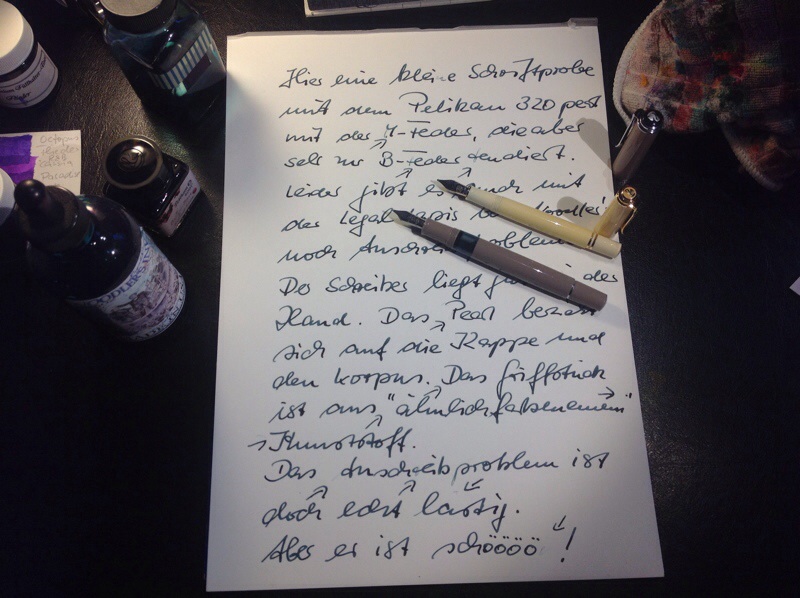 Hier eine kleine Schriftprobe
mit dem Pelikan 320 perl
mit der M-Feder, die aber
sehr zur B-Feder tendiert.
Leider gibt es auch mit
der Legal Lapis von
noch Anschreibprobleme
Der Schreiber liegt in der
Hand. Das Pearl bezieht
sich auf die Kappe und
den Korpus. Das Griffstück
ist aus "ähnlichfarbenem"
Kunststoff.
Das Anschreibproblem ist
doch echt lästig.
Aber er ist schöööö!